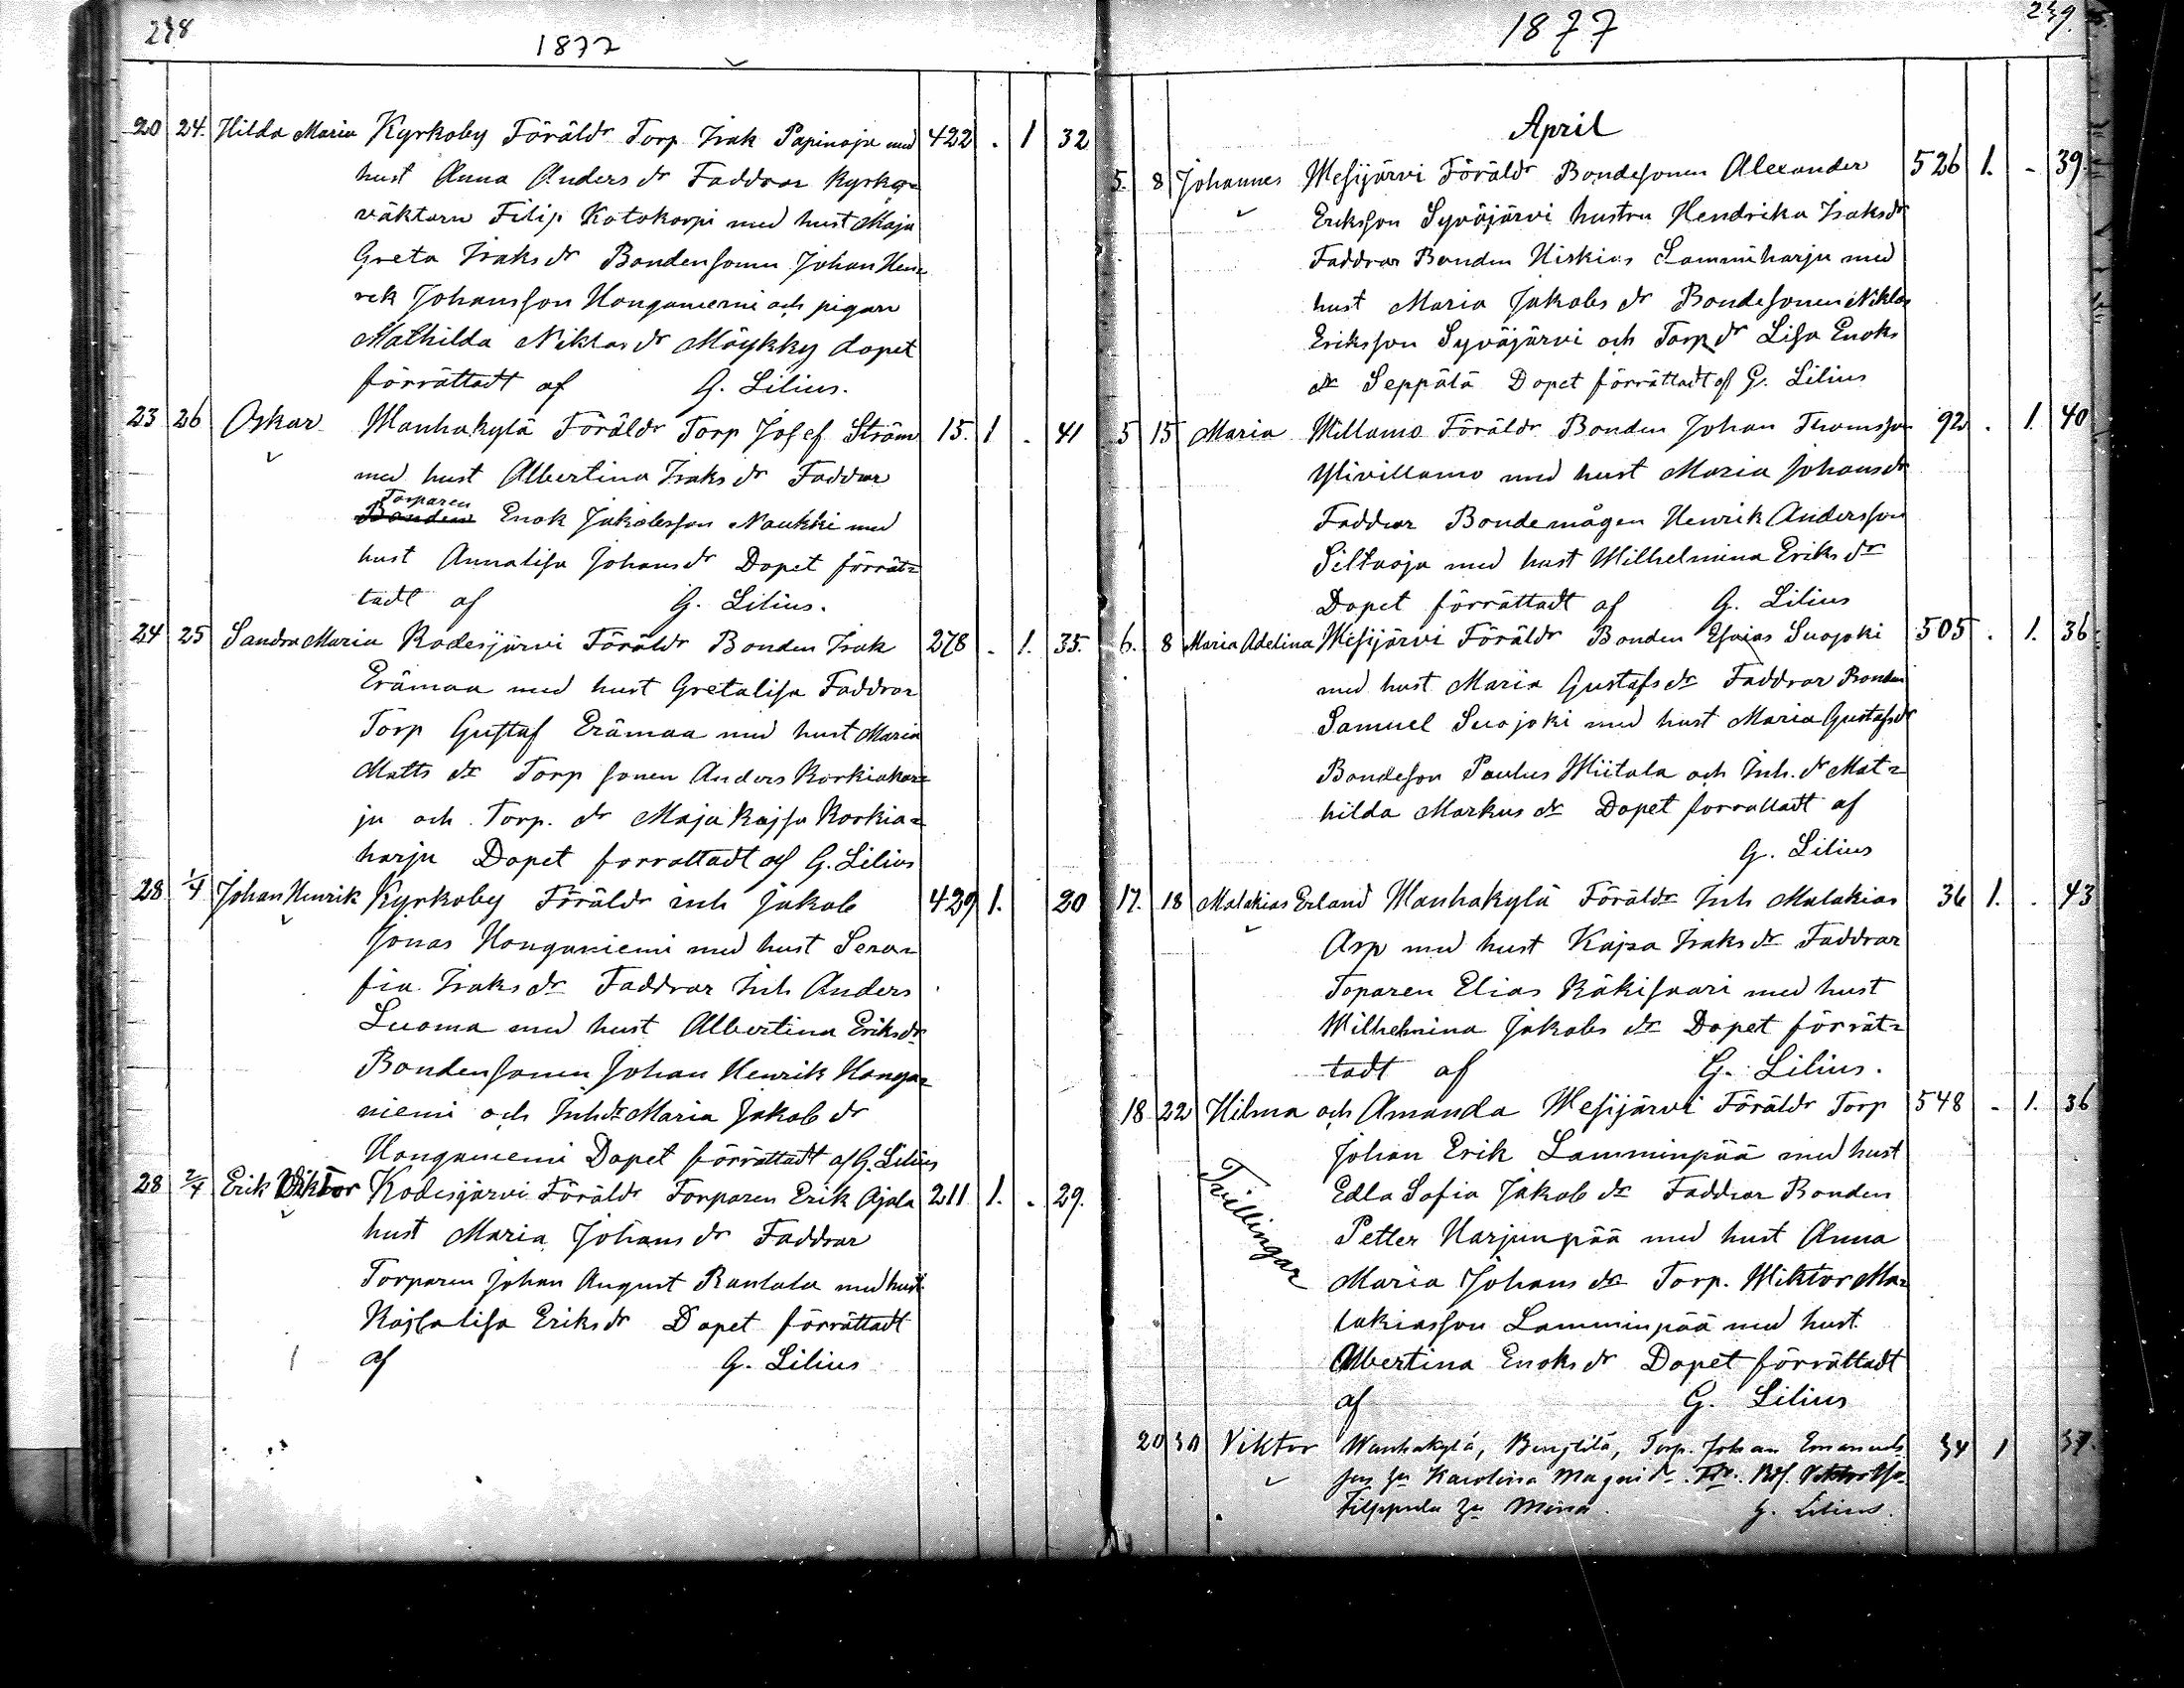 238
1877
20 24. Hilda Maria Kyrkoby Föräldr Torp Isak Papinoja med 422 . 1 32
hust Anna Anders dr Faddrar Kyrko=
väktarn Filip Kotokorpi med hust Maja
Greta Isaks dr Bondensonen Johan Hen=
rik Johansson Honganiemi och pigan
Mathilda Niklas dr Möykky dopet
förrättadt af G. Lilius.
23 26 Oskar Wanhakylä Föräldr Torp Josef Ström 15. 1 . 41
med hust Albertina Isaks dr Faddrar
Torparen
Bonden Enok Jakobsson Naukki med
hust Annalisa Johans dr Dopet förrät=
tadt af G. Lilius.
24 25 Sandra Maria Kodesjärvi Föräldr Bonden Isak 278 . 1. 35.
Erämaa med hust Gretalisa Faddrar
Torp Gustaf Erämaa med hust Maria
Matts dr Torp sonen Anders Korkiahar=
ju och Torp. dr Maja Kajsa Korkia=
harju Dopet forrattadt af G. Lilius
28 1/4 Johan Henrik Kyrkoby Föräldr inh Jakob 429 1. 20
Jonas Honganiemi med hust Sera=
fia Isaks dr Faddrar Inh Anders
Luoma med hust Albertina Eriks dr
Bondensonen Johan Henrik Honga=
niemi och Inh dr Maria Jakob dr
Honganiemi Dopet förrättadt af G. Lilius
28 2/4 Erik Viktor Kodesjärvi Föräldr Torparen Erik Ajala 211 1. . 29.
hust Maria Johans dr Faddrar
Torparen Johan August Rantala med hust
Kajsalisa Eriks dr Dopet förrättadt
af G. Lilius
239.
1877
April
5. 8 Johannes Wesijärvi Föräldr Bondesonen Alexander 526 1. - 39.
Eriksson Syväjärvi hustru Hendrika Isaks dr
Faddrar Bonden Hiskias Lamminharju med
hust Maria Jakobs dr Bondesonen Niklas
Eriksson Syväjärvi och Torp dr Lisa Enoks
dr Seppälä Dopet förrättadt af G. Lilius
5 15 Maria Willamo Föräldr Bonden Johan Thomsson 92 . 1. 40
Ylivillamo med hust Maria Johans dr
Faddrar Bondemågen Henrik Andersson
Siltaoja med hust Wilhelmina Eriks dr
Dopet förrättadt af G. Lilius
6. 8 Maria Adelina Wesijärvi Föräldr Bonden Esaias Suojoki 505 . 1. 36.
med hust Maria Gustafs dr Faddrar Bonden
Samuel Suojoki med hust Maria Gustafs dr
Bondeson Paulus Wiitala och Inh. dr Mat=
hilda Markus dr Dopet forrattadt af
G. Lilius
17. 18 Malakias Erland Wanhakylä Föräldr Inh Malakias 36 1. . 43
Asp med hust Kajsa Isaks dr Faddrar
Toparen Elias Käkisaari med hust
Wilhelmina Jakobs dr Dopet förrät=
tadt af G. Lilius.
18 22 Hilma och Amanda Wesijärvi Föräldr Torp 548 - 1. 36
Johan Erik Lamminpää med hust
Tvillingar
Edla Sofia Jakob dr Faddrar Bonden
Petter Harjunpää med hust Anna
Maria Johans dr Torp. Wiktor Ma=
lakiasson Lamminpää med hust.
Albertina Enoks dr Dopet förrättadt
af G. Lilius
20 30 Viktor Wanhakylä, Torp. Johan Emanuels 34 1 37.
Karolina Magni dr. Viktor
Filppula Mina. G. Lilius.